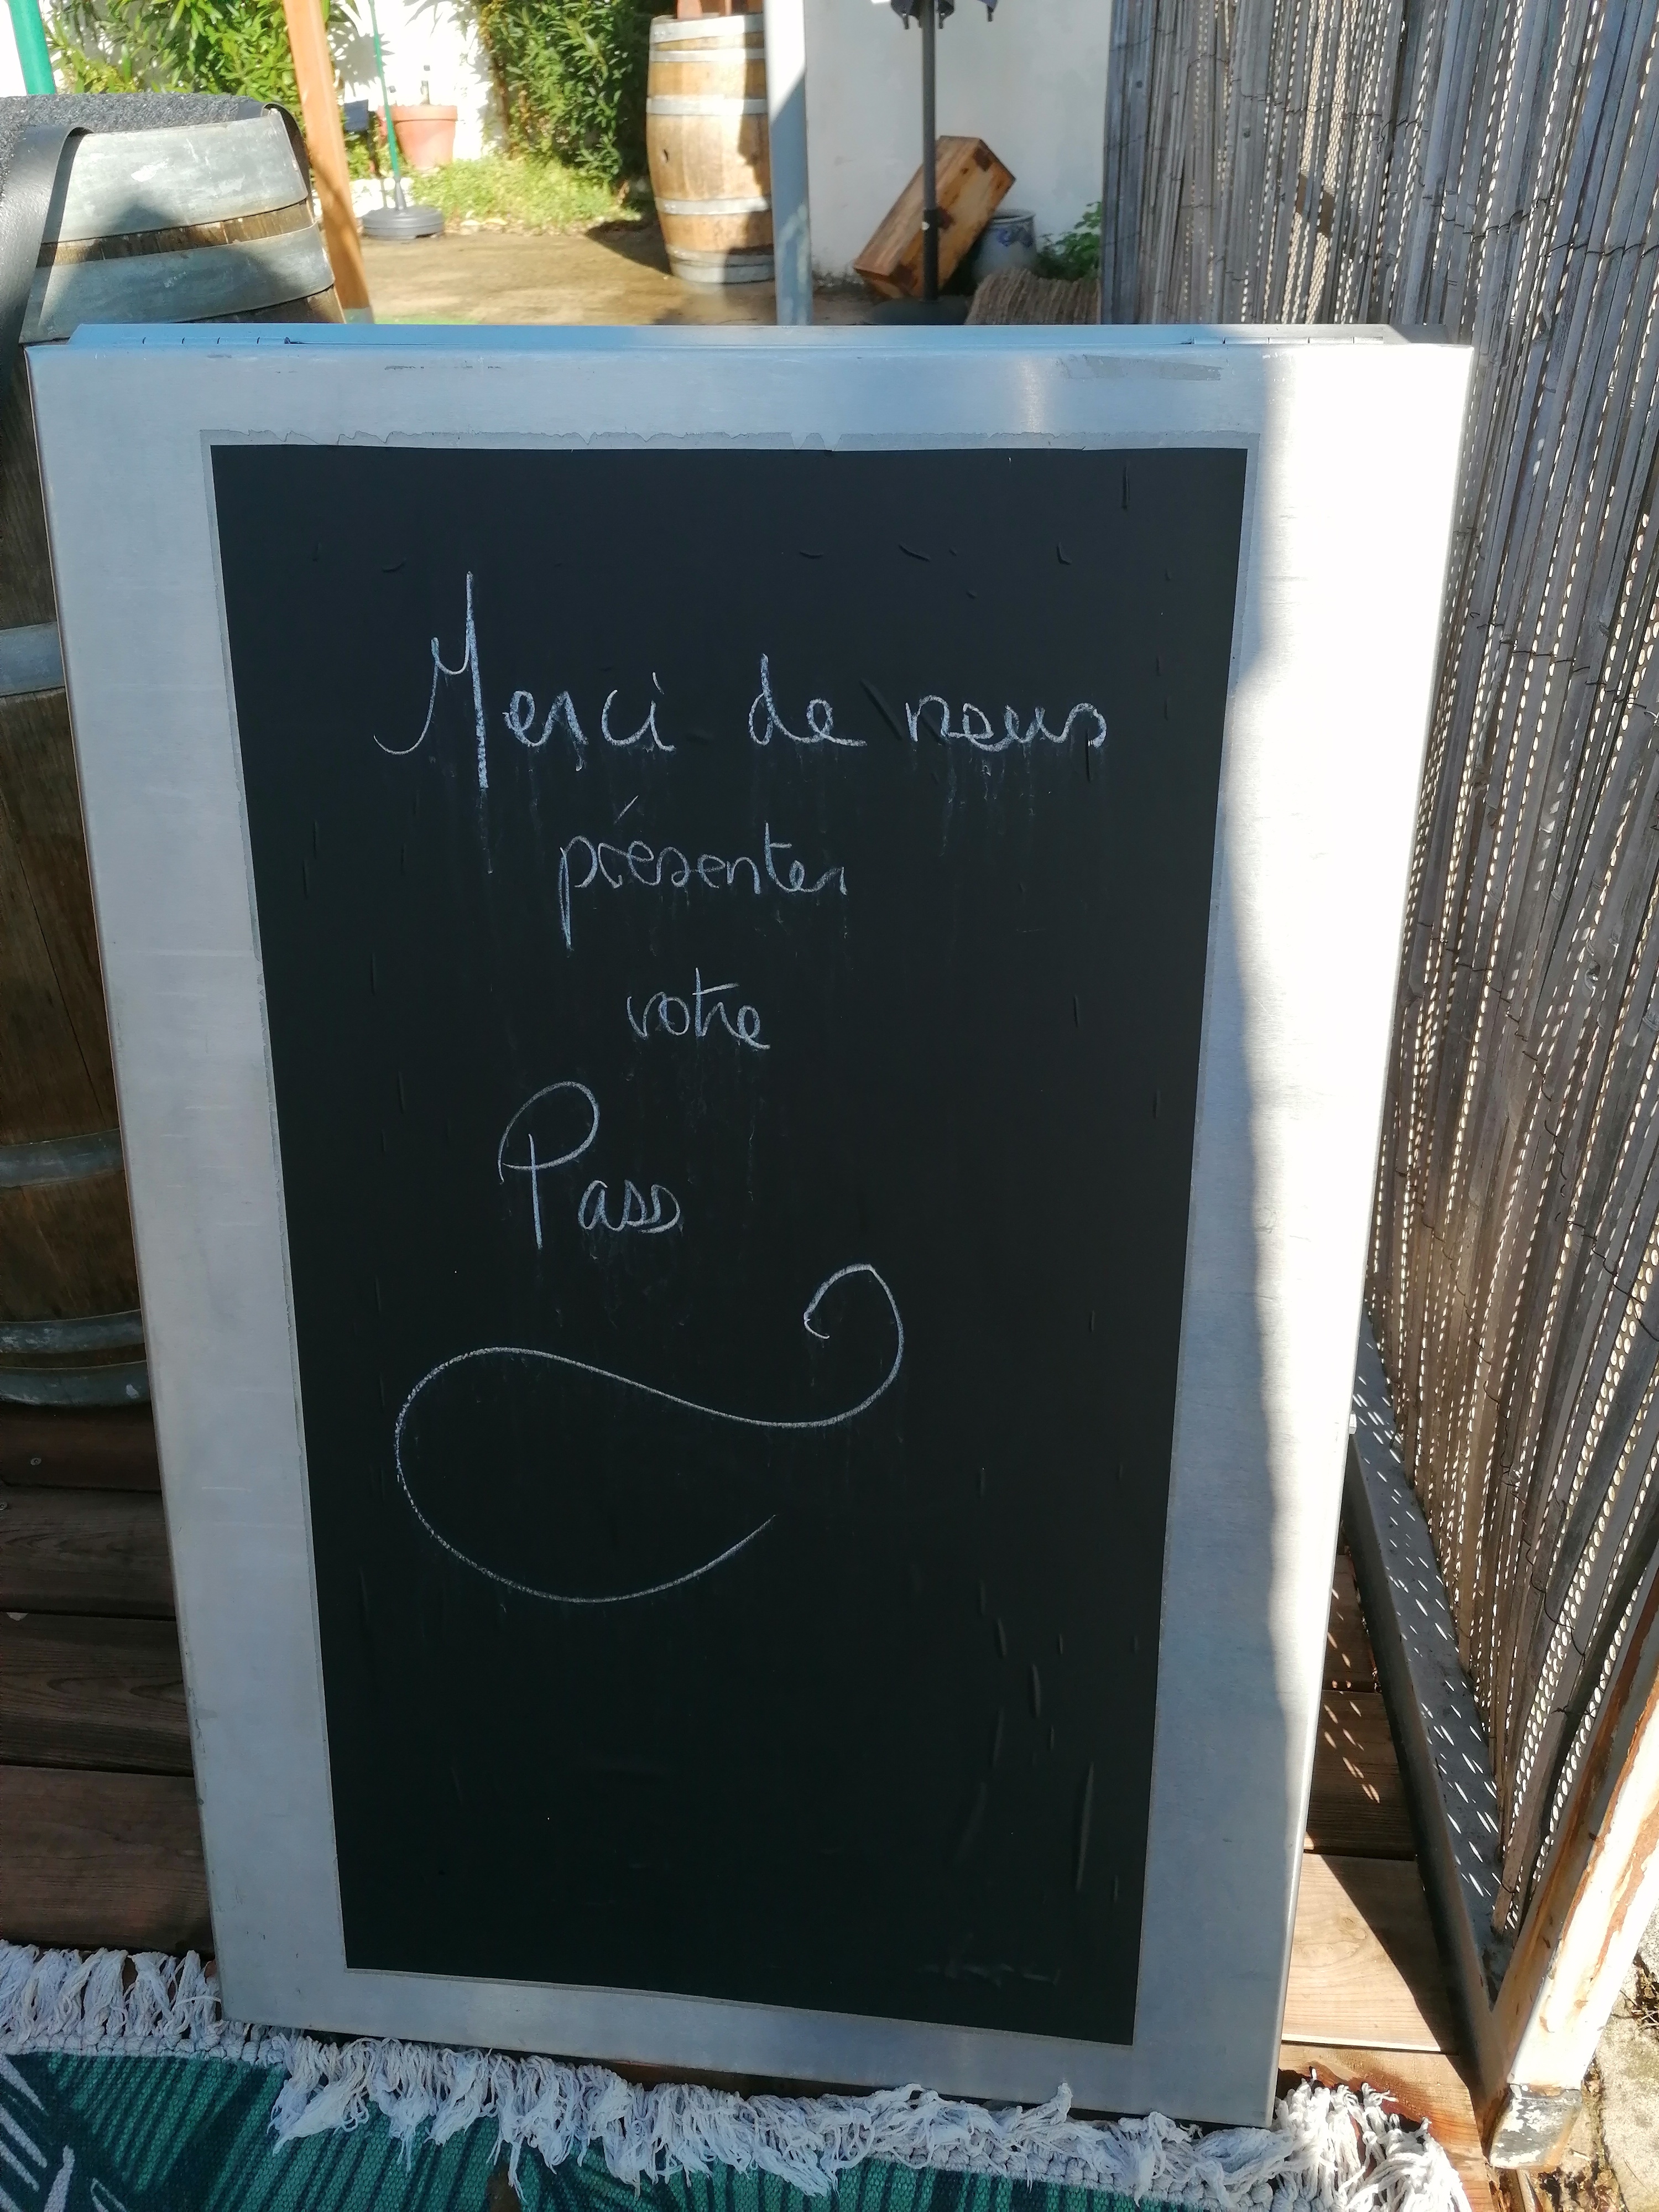 Merci de nous
présenter
votre
Pass